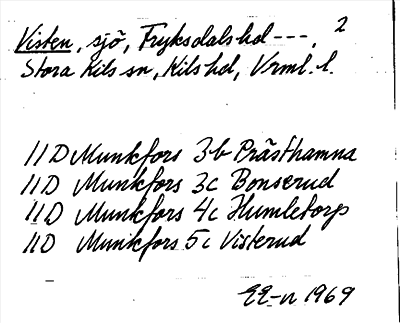 Visten, sjö, Fryksdals hd ---, 2
Stora Kils sn, Kils hd, Vrml. l.
11D Munkfors 3b Prästhamna
11D Munkfors 3c Bonserud
11D Munkfors 4c Humletorp
11D Munkfors 5c Visterud
EE-n 1969